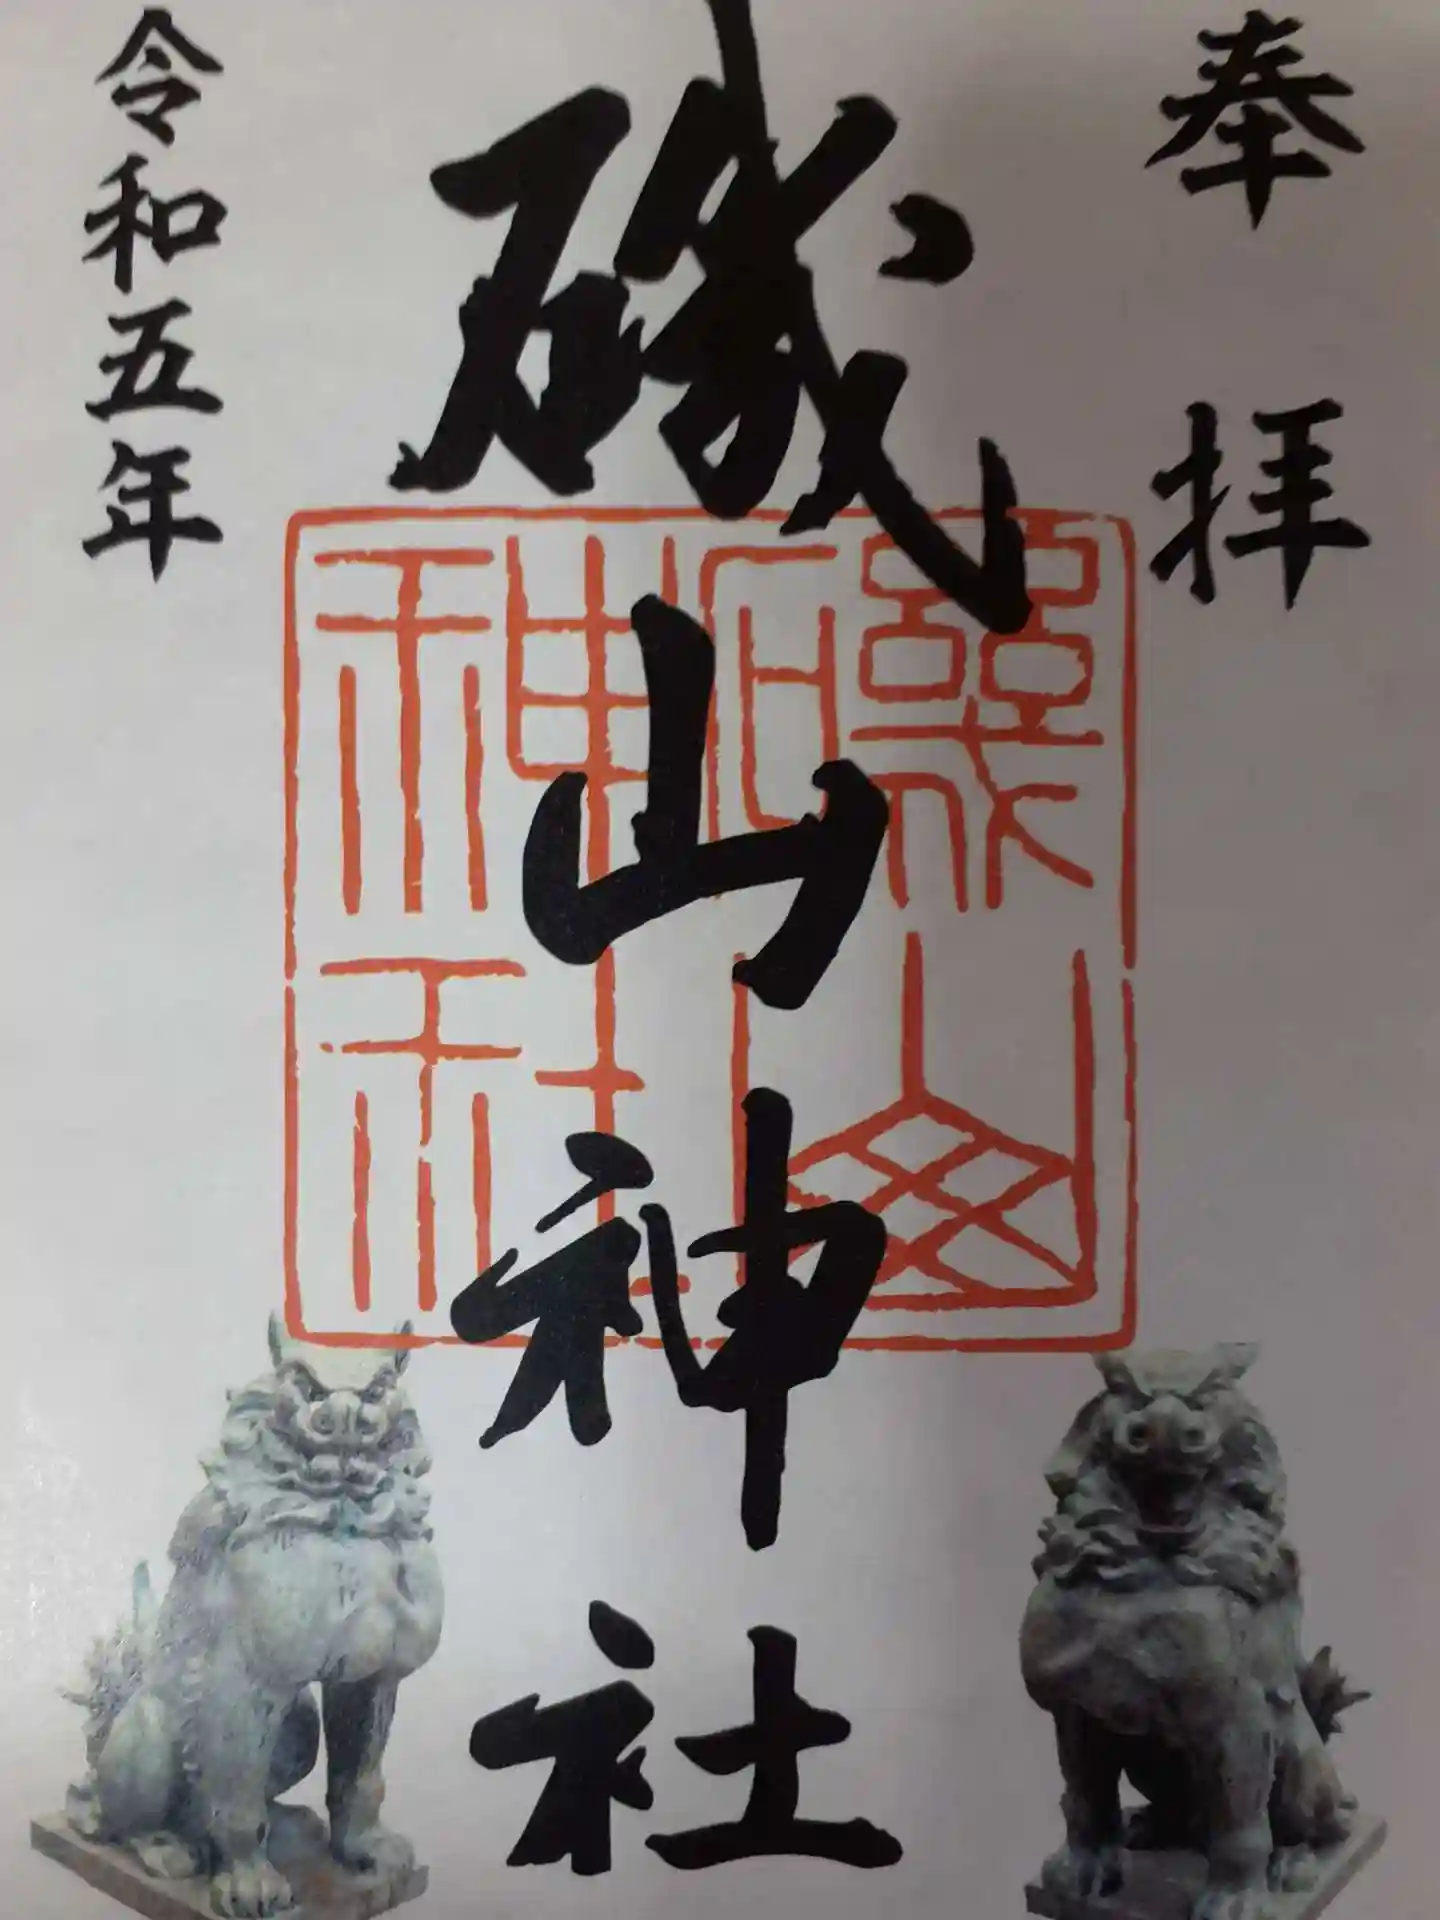 奉拝
磯山神社
礒山神社
令和五年